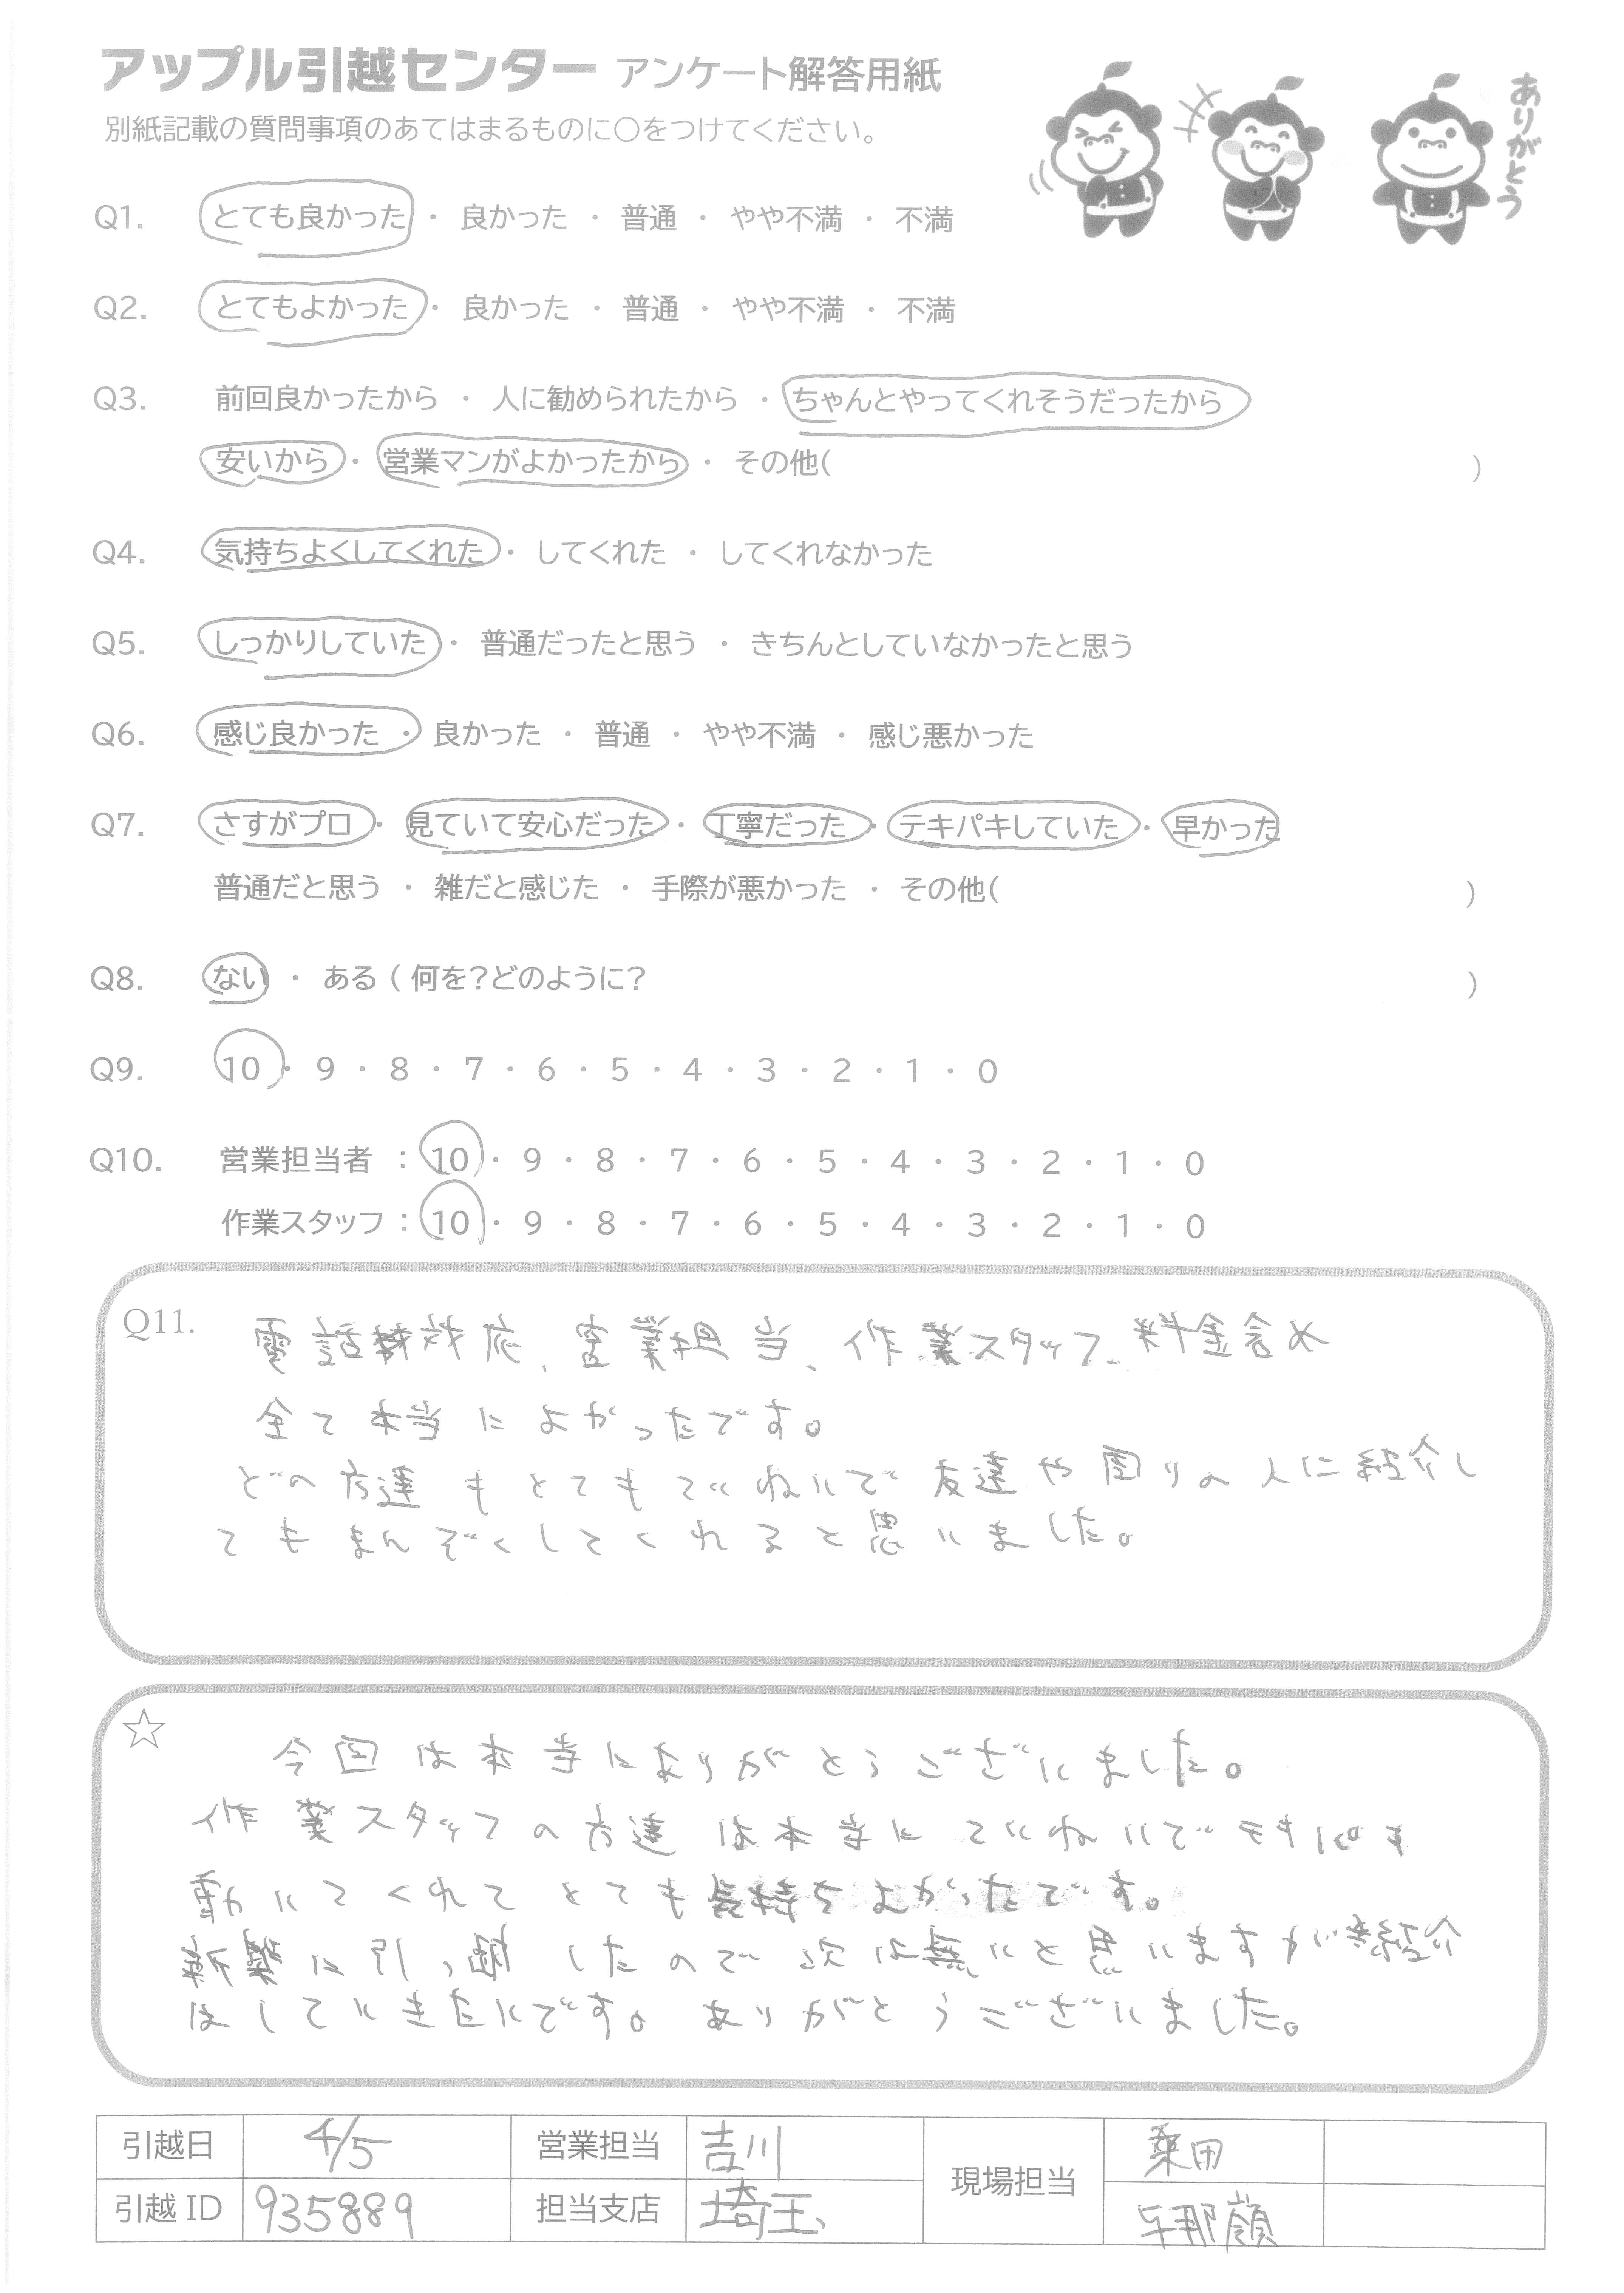 アップル引越センター アンケート解答用紙
ありがとう
別紙記載の質問事項のあてはまるものに○をつけてください。
Q1. とても良かった ・ 良かった ・ 普通 ・ やや不満 ・ 不満
Q2. とてもよかった ・ 良かった ・ 普通 ・ やや不満 ・ 不満
Q3. 前回良かったから ・ 人に勧められたから ・ ちゃんとやってくれそうだったから
安いから ・ 営業マンがよかったから ・ その他( )
Q4. 気持ちよくしてくれた ・ してくれた ・ してくれなかった
Q5. しっかりしていた ・ 普通だったと思う ・ きちんとしていなかったと思う
Q6. 感じ良かった ・ 良かった ・ 普通 ・ やや不満 ・ 感じ悪かった
Q7. さすがプロ ・ 見ていて安心だった ・ 丁寧だった ・ テキパキしていた ・ 早かった
普通だと思う ・ 雑だと感じた ・ 手際が悪かった ・ その他( )
Q8. ない ・ ある ( 何を?どのように? )
Q9. 10 ・ 9 ・ 8 ・ 7 ・ 6 ・ 5 ・ 4 ・ 3 ・ 2 ・ 1 ・ 0
Q10. 営業担当者 : 10 ・ 9 ・ 8 ・ 7 ・ 6 ・ 5 ・ 4 ・ 3 ・ 2 ・ 1 ・ 0
作業スタッフ : 10 ・ 9 ・ 8 ・ 7 ・ 6 ・ 5 ・ 4 ・ 3 ・ 2 ・ 1 ・ 0
Q11. 電話対応、営業担当、作業スタッフ、料金含め
全て本当によかったです。
どの方達もとてもていねいで友達や周りの人に紹介し
てもまんぞくしてくれると思いました。
☆ 今回は本当にありがとうございました。
作業スタッフの方達は本当にていねいでテキパキ
動いてくれてとても気持ちよかったです。
新築に引っ越したので次は無いと思いますが紹介
はしていきたいです。ありがとうございました。
引越日 4/5 営業担当 吉川 現場担当 桑田
引越 ID 935889 担当支店 埼玉 与那嶺